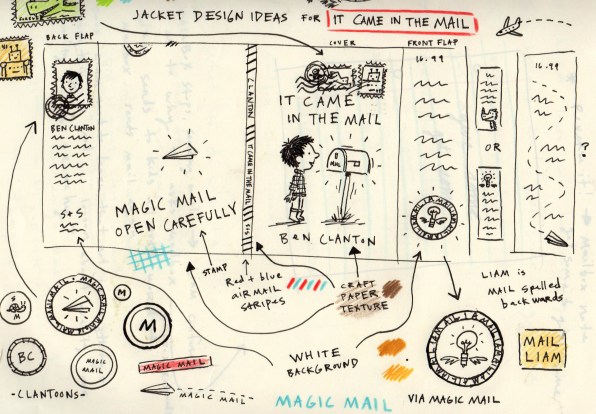 JACKET DESIGN IDEAS FOR IT CAME IN THE MAIL
BACK FLAP
COVER
FRONT FLAP
16.99
16.99
BEN CLANTON
S+S
MAGIC MAIL
OPEN CAREFULLY
CLANTON
IT CAME IN THE MAIL
S+S
IT CAME
IN THE MAIL
MAIL
BEN CLANTON
OR
?
STAMP
Red + blue
air MAIL
stripes
CRAFT
PAPER
TEXTURE
LIAM is
MAIL spelled
backwards
MAIL
LIAM
WHITE
BACKGROUND
MAGIC MAIL
VIA MAGIC MAIL
M
M
BC
MAGIC
MAIL
MAGIC MAIL
MAGIC MAIL
-CLANTOONS-